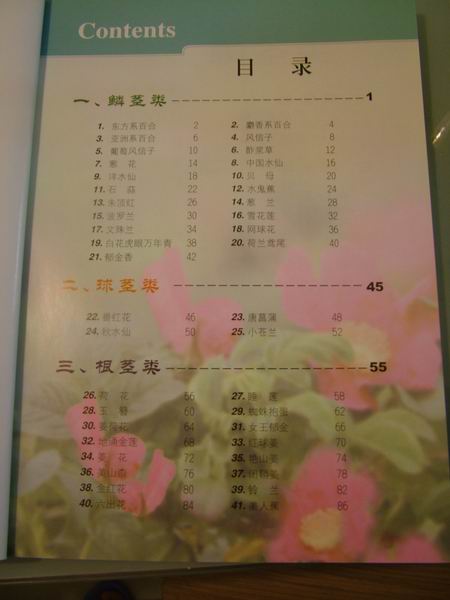 Contents
目 录
一、鳞茎类 1
1. 东方系百合 2 2. 麝香系百合 4
3. 亚洲系百合 6 4. 风信子 8
5. 葡萄风信子 10 6. 酢浆草 12
7. 葱 花 14 8. 中国水仙 16
9. 洋水仙 18 10. 贝 母 20
11. 石 蒜 22 12. 水鬼蕉 24
13. 朱顶红 26 14. 葱 兰 28
15. 波罗兰 30 16. 雪花莲 32
17. 文殊兰 34 18. 网球花 36
19. 白花虎眼万年青 38 20. 荷兰鸢尾 40
21. 郁金香 42
二、球茎类 45
22. 番红花 46 23. 唐菖蒲 48
24. 秋水仙 50 25. 小苍兰 52
三、根茎类 55
26. 荷 花 56 27. 睡 莲 58
28. 玉 簪 60 29. 蜘蛛抱蛋 62
30. 姜荷花 64 31. 女王郁金 66
32. 地涌金莲 68 33. 红球姜 70
34. 姜 花 72 35. 艳山姜 74
36. 美山姜 76 37. 闭鞘姜 78
38. 金红花 80 39. 铃 兰 82
40. 六出花 84 41. 美人蕉 86